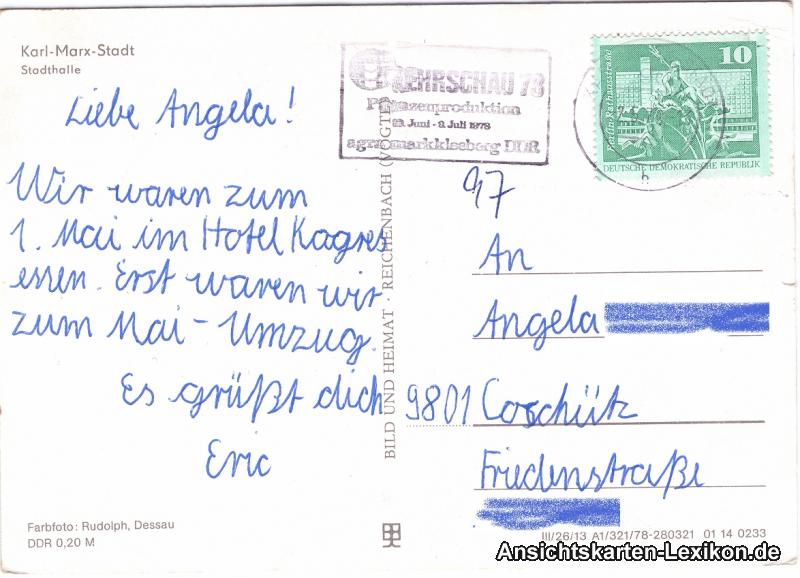 Karl-Marx-Stadt
Stadthalle
Liebe Angela!
Wir waren zum
1. Mai im Hotel Kagres
essen. Erst waren wir
zum Mai-Umzug.
Es grüßt dich
Eric
Farbfoto: Rudolph, Dessau
DDR 0,20 M
BILD UND HEIMAT · REICHENBACH (VOGTL)
LEHRSCHAU 78
Pflanzenproduktion
Juni - 9. Juli 1978
agra markkleeberg DDR
10
Berlin, Rathausstraße
DEUTSCHE DEMOKRATISCHE REPUBLIK
b
97
An
Angela
9801 Coschütz
Friedenstraße
III/26/13 A1/321/78-280321 01 14 0233
Ansichtskarten-Lexikon.de